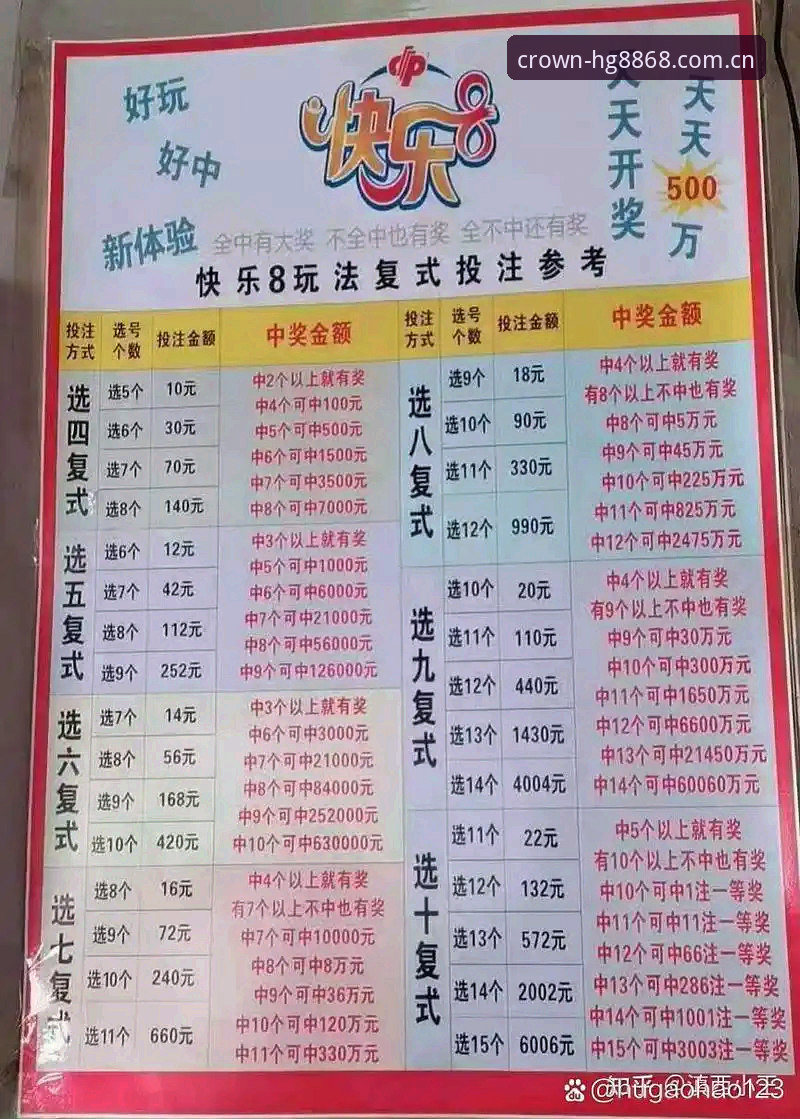 crown-hg8868.com.cn
好玩
好中
新体验
快乐8
天天开奖
天天
500
万
全中有大奖 不全中也有奖 全不中还有奖
快乐8玩法复式投注参考
投注方式 选号个数 投注金额 中奖金额
选四复式
选5个 10元
选6个 30元
选7个 70元
选8个 140元
中2个以上就有奖
中4个可中100元
中5个可中500元
中6个可中1500元
中7个可中3500元
中8个可中7000元
选五复式
选6个 12元
选7个 42元
选8个 112元
选9个 252元
中3个以上就有奖
中5个可中1000元
中6个可中6000元
中7个可中21000元
中8个可中56000元
中9个可中126000元
选六复式
选7个 14元
选8个 56元
选9个 168元
选10个 420元
中3个以上就有奖
中6个可中3000元
中7个可中21000元
中8个可中84000元
中9个可中252000元
中10个可中630000元
选七复式
选8个 16元
选9个 72元
选10个 240元
选11个 660元
中4个以上就有奖
有7个以上不中也有奖
中7个可中10000元
中8个可中8万元
中9个可中36万元
中10个可中120万元
中11个可中330万元
投注方式 选号个数 投注金额 中奖金额
选八复式
选9个 18元
选10个 90元
选11个 330元
选12个 990元
中4个以上就有奖
有8个以上不中也有奖
中8个可中5万元
中9个可中45万元
中10个可中225万元
中11个可中825万元
中12个可中2475万元
选九复式
选10个 20元
选11个 110元
选12个 440元
选13个 1430元
选14个 4004元
中4个以上就有奖
有9个以上不中也有奖
中9个可中30万元
中10个可中300万元
中11个可中1650万元
中12个可中6600万元
中13个可中21450万元
中14个可中60060万元
选十复式
选11个 22元
选12个 132元
选13个 572元
选14个 2002元
选15个 6006元
中5个以上就有奖
有10个以上不中也有奖
中10个可中1注一等奖
中11个可中11注一等奖
中12个可中66注一等奖
中13个可中286注一等奖
中14个可中1001注一等奖
中15个可中3003注一等奖